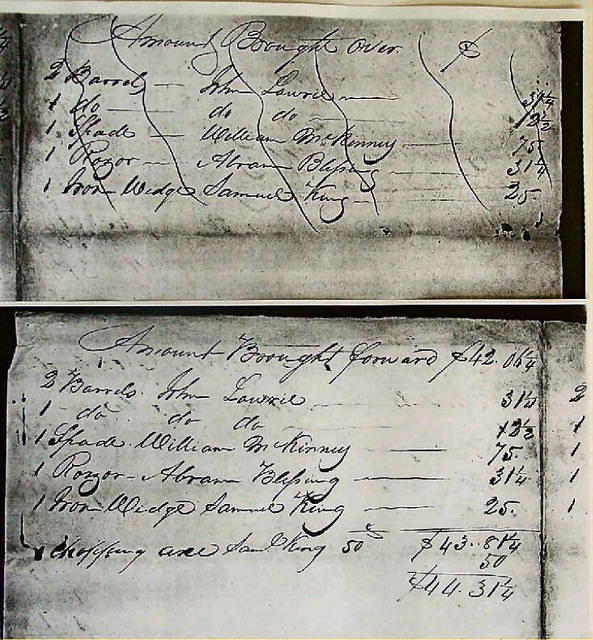 Amount Brought Over $
2 Barrels John Lowrie 31¼
1 do do do 12½
1 Spade William McKinney 75
1 Razor Abram Blesing 31¼
1 Iron Wedge Samuel King 25
Amount Brought forward $42.06¼
2 Barrels John Lowrie 31¼
1 do do do 12½
1 Spade William McKinney 75
1 Rozor Abram Blesing 31¼
1 Iron Wedge Samuel King 25.
1 Chopping axe Saml King 50 $43.81¼
50
$44.31¼
2
1
1
1
1